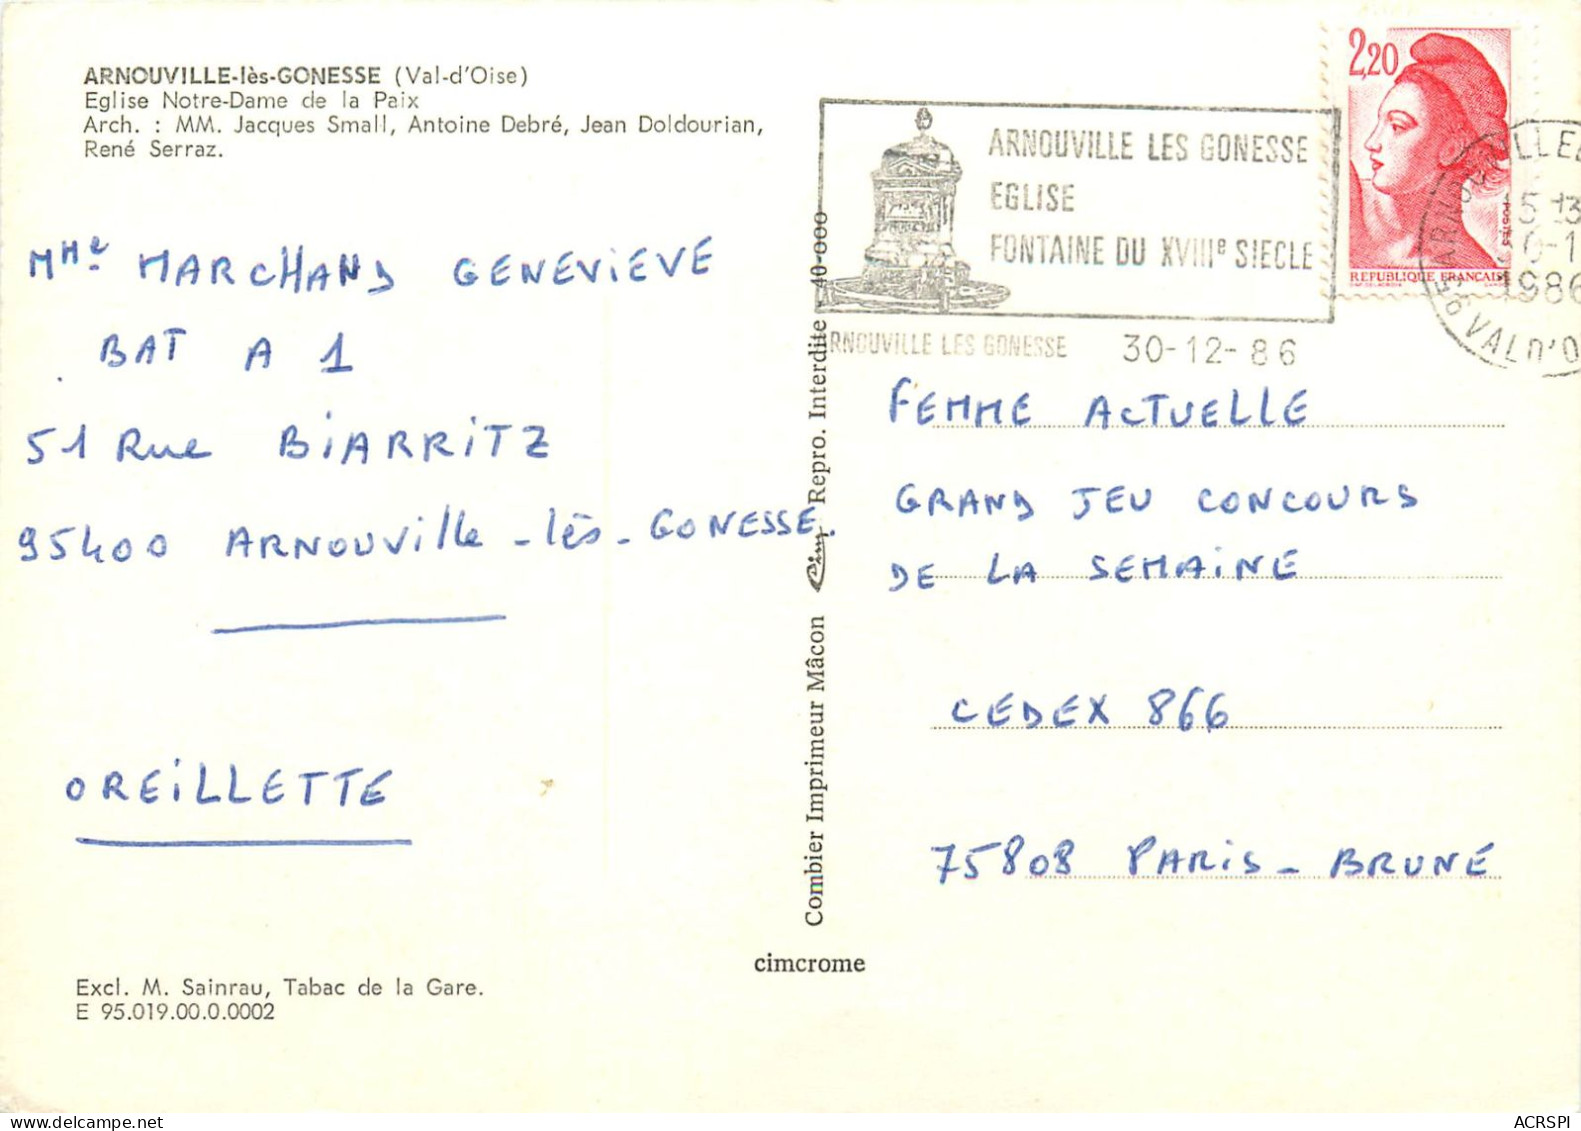 ARNOUVILLE-lès-GONESSE (Val-d'Oise)
Eglise Notre-Dame de la Paix
Arch. : MM. Jacques Small, Antoine Debré, Jean Doldourian,
René Serraz.
MMe MARCHAND GENEVIEVE
BAT A 1
51 Rue BIARRITZ
95400 ARNOUVille - lès - GONESSE.
OREILLETTE
Excl. M. Sainrau, Tabac de la Gare.
E 95.019.00.0.0002
Combier Imprimeur Mâcon Cim Repro. Interdite - 40-000
cimcrome
ARNOUVILLE LES GONESSE
EGLISE
FONTAINE DU XVIIIe SIECLE
RNOUVILLE LES GONESSE 30-12-86
2,20
POSTES
REPUBLIQUE FRANCAISE
95 ARNOUVILLE
1986
VAL D'O
FEMME ACTUELLE
GRAND JEU CONCOURS
DE LA SEMAINE
CEDEX 866
75808 PARIS - BRUNE
ACRSPI